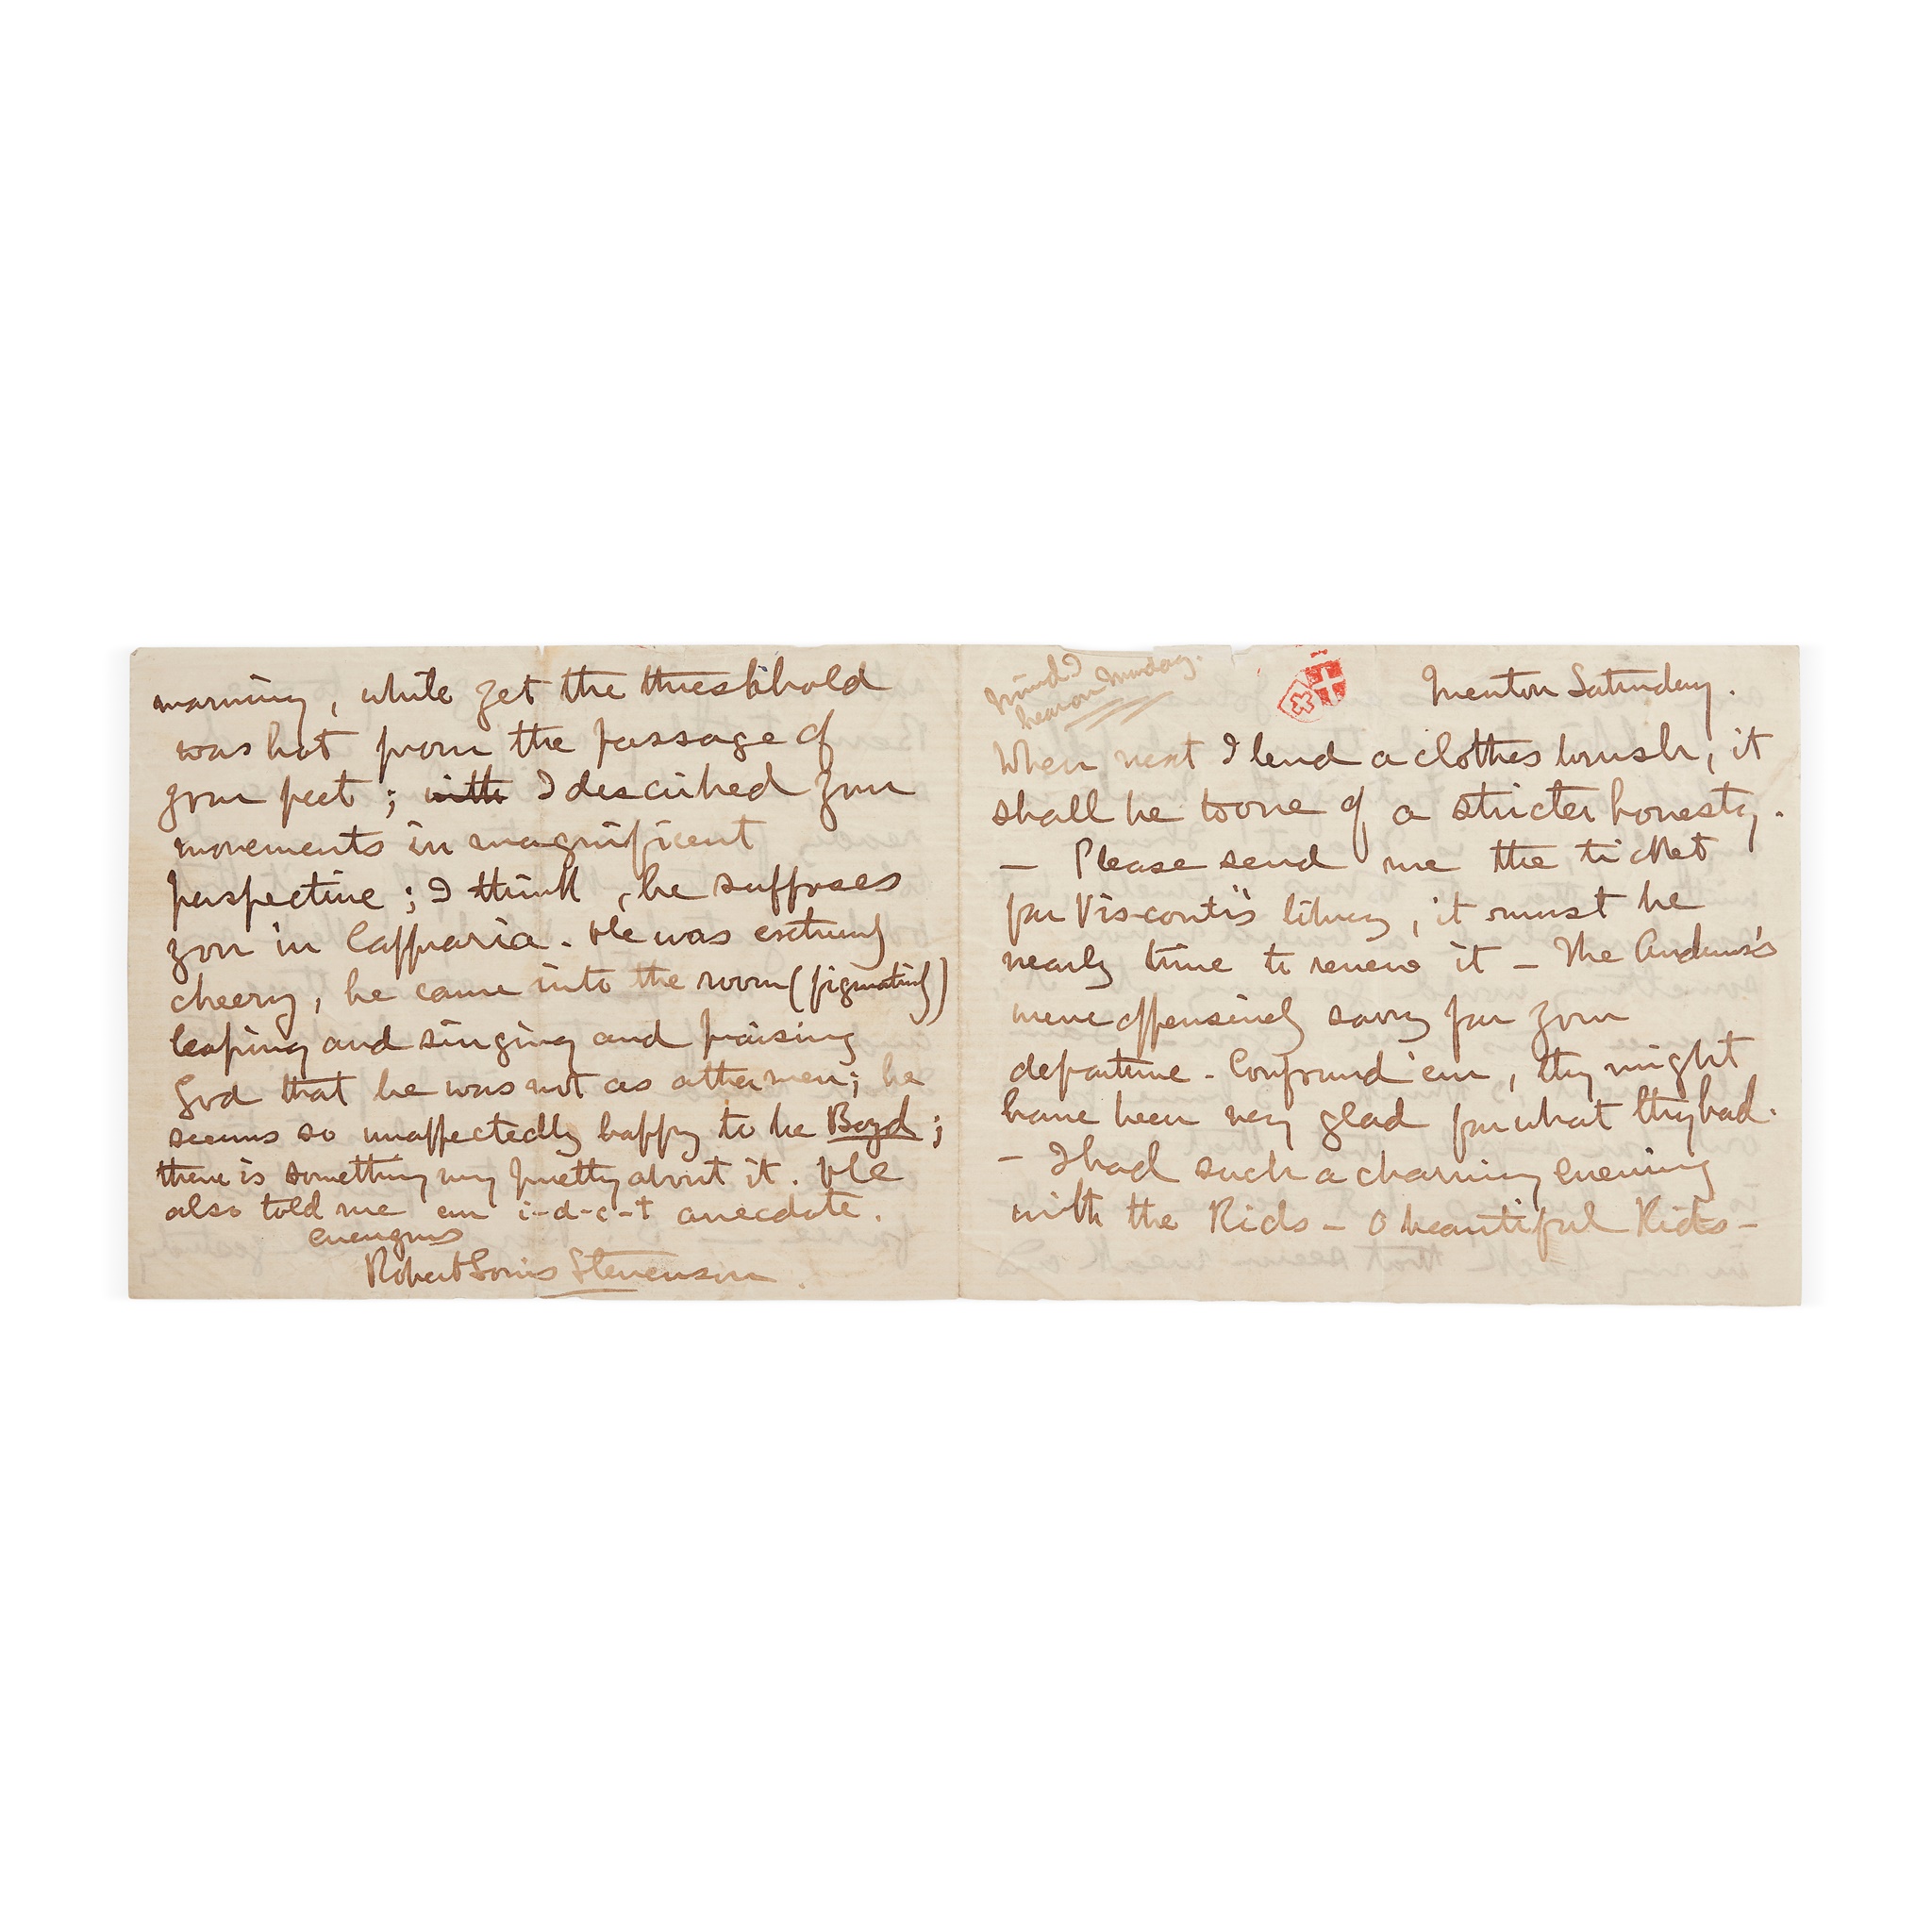 morning, while yet the threshhold
was hot from the passage of
your feet; with I described your
movements in magnificent
perspective; I think, he supposes
you in Caffraria. He was extremely
cheery, he came into the room (figuratively)
leaping and singing and praising
God that he was not as other men; he
seems so unaffectedly happy to be Boyd;
there is something very pretty about it. He
also told me em i-d-c-t anecdote.
Robert Louis Stevenson.
Mind?
hear on Monday.
Menton Saturday.
When next I lend a clothes brush, it
shall be to one of a stricter honesty.
– Please send me the ticket
for Visconti's library, it must be
nearly time to renew it – The Andrews's
were offensively sorry for your
departure. Confound 'em, they might
have been very glad for what they had.
– I had such a charming evening
with the Kids – O beautiful Kids –